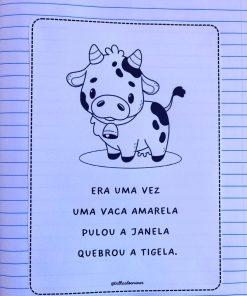 ERA UMA VEZ
UMA VACA AMARELA
PULOU A JANELA
QUEBROU A TIGELA.